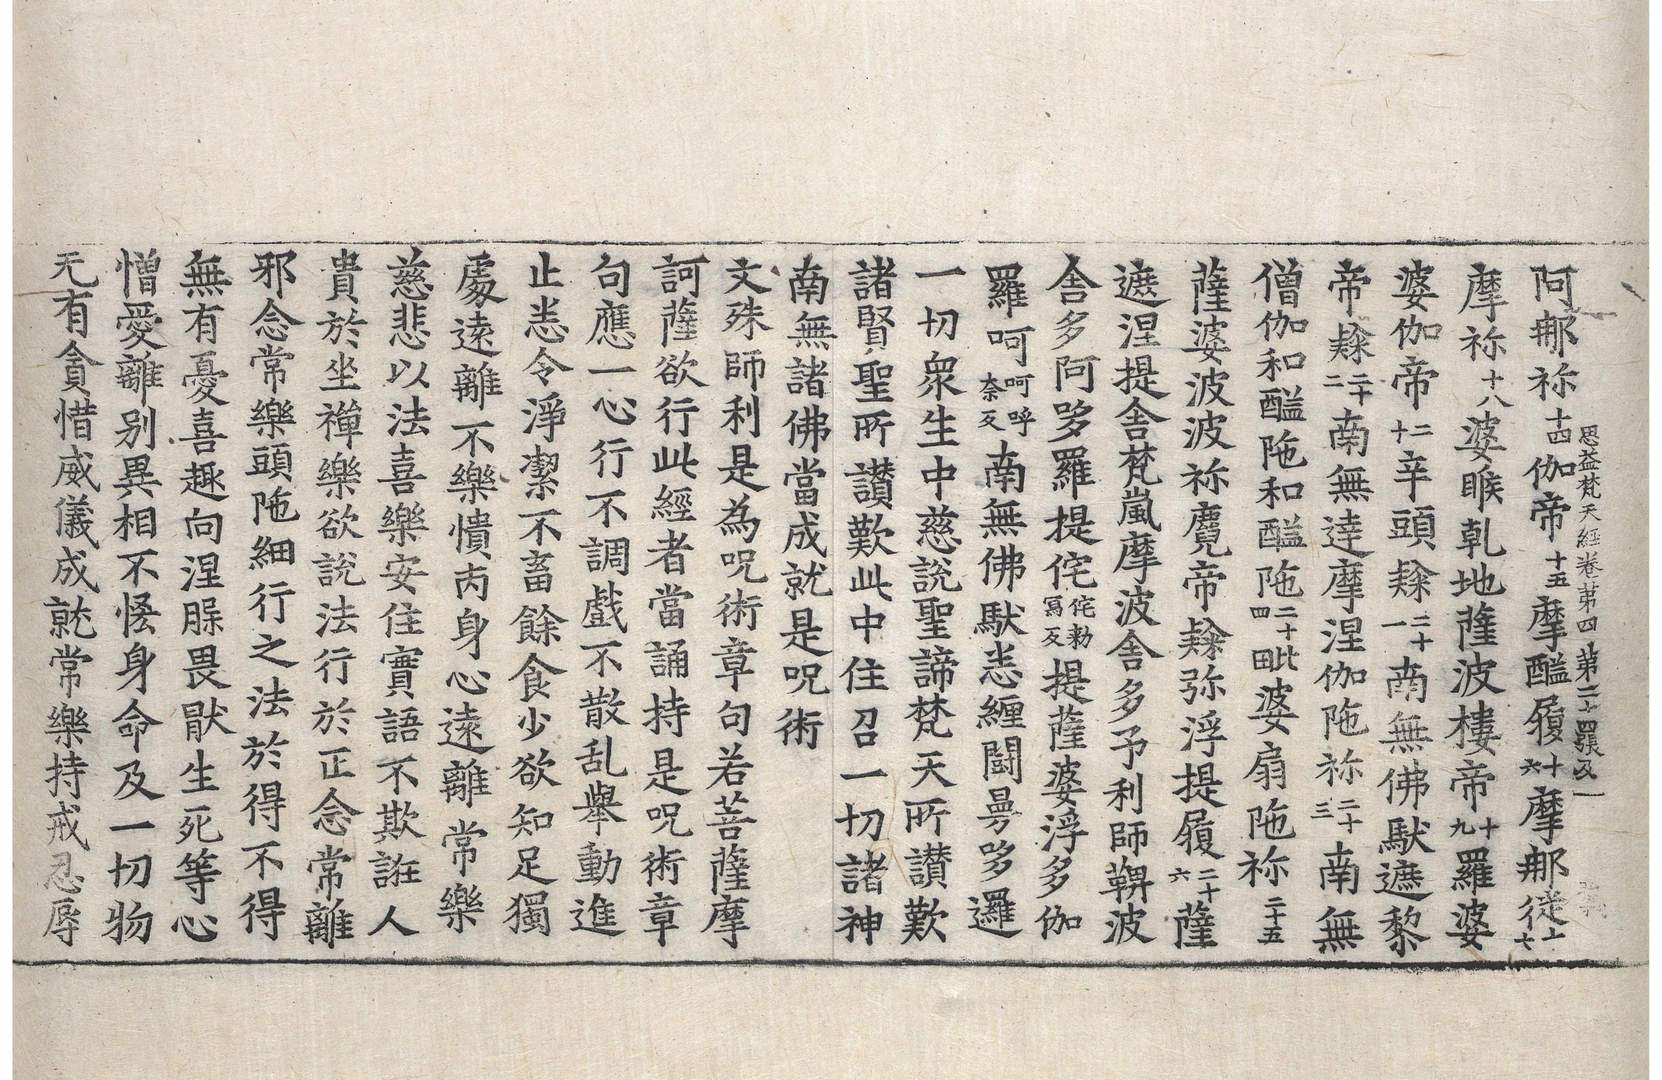 思益梵天經卷第四 第二十四張 及一
阿那祢十四伽帝十五摩醯履十六摩那徙十七
摩祢十八婆睺乹地薩波樓帝十九羅婆
婆伽帝二十辛頭隸二十一南無佛馱遮黎
帝隸二十二南無達摩涅伽陁祢二十三南無
僧伽和醯陁和醯陁二十四毗婆扇陁祢二十五
薩婆波波祢魔帝隸弥浮提履二十六薩
遮涅提舍梵嵐摩波舍多予利師鞞波
舍多阿哆羅提侘侘勑寫反提薩婆浮多伽
羅呵呵呼奈反南無佛馱悉纏鬪曼哆邏
一切衆生中慈說聖諦梵天所讃歎
諸賢聖所讃歎此中住召一切諸神
南無諸佛當成就是呪術
文殊師利是為呪術章句若菩薩摩
訶薩欲行此經者當誦持是呪術章
句應一心行不調戲不散乱舉動進
止悉令淨潔不畜餘食少欲知足獨
處遠離不樂憒丙身心遠離常樂
慈悲以法喜樂安住實語不欺誑人
貴於坐禪樂欲說法行於正念常離
邪念常樂頭陁細行之法於得不得
無有憂喜趣向涅脲畏猒生死等心
憎愛離別異相不悋身命及一切物
无有貪惜威儀成就常樂持戒忍辱